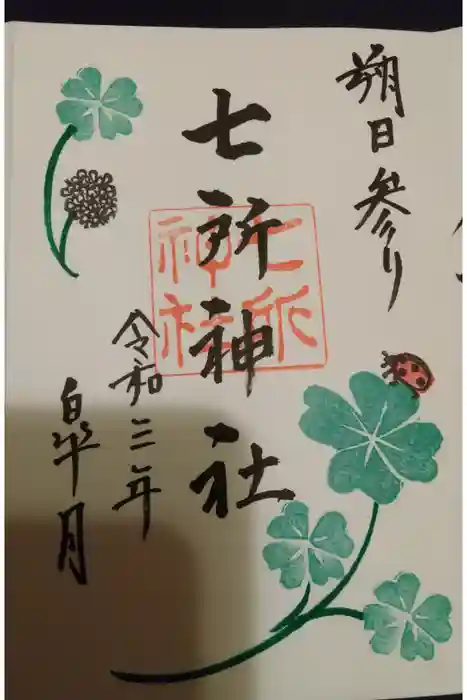 朔日参り
七所神社
七所神社
令和三年
皐月